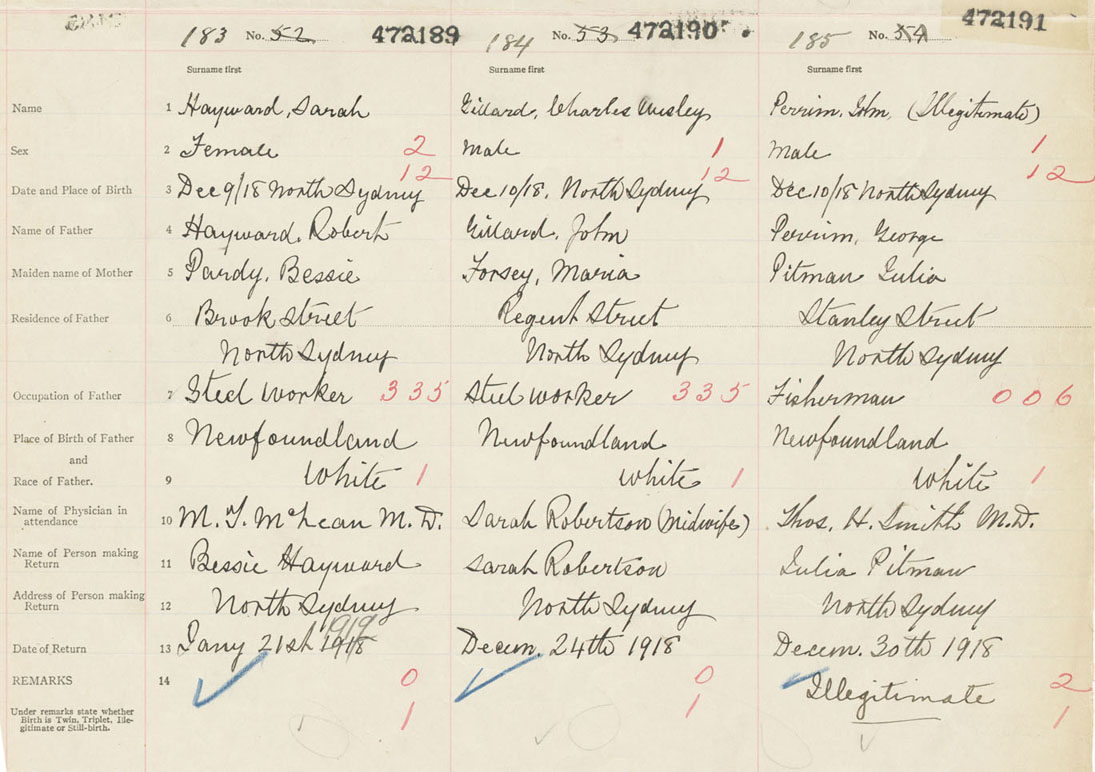 183 No. 52 472189 184 No. 53 472190 185 No. 54 472191
Surname first Surname first Surname first
Name 1 Hayward, Sarah Gillard, Charles Wesley Perrim, John, (Illegitimate)
Sex 2 Female 2 Male 1 Male 1
12 12 12
Date and Place of Birth 3 Dec 9/18 North Sydney Dec 10/18, North Sydney Dec 10/18 North Sydney
Name of Father 4 Hayward, Robert Gillard, John Perrim, George
Maiden name of Mother 5 Pardy, Bessie Forsey, Maria Pitman Julia
Residence of Father 6 Brook Street Regent Street Stanley Street
North Sydney North Sydney North Sydney
Occupation of Father 7 Steel Worker 335 Steel Worker 335 Fisherman 006
Place of Birth of Father 8 Newfoundland Newfoundland Newfoundland
and
Race of Father. 9 White 1 White 1 White 1
Name of Physician in
attendance 10 M. T. McLean M.D. Sarah Robertson (Midwife) Thos. H. Smith M.D.
Name of Person making
Return 11 Bessie Hayward Sarah Robertson Julia Pitman
Address of Person making
Return 12 North Sydney North Sydney North Sydney
1919
Date of Return 13 Jany 21st 1918 Decem. 24th 1918 Decem. 30th 1918
REMARKS 14 0 0 Illegitimate 2
Under remarks state whether
Birth is Twin, Triplet, Ille-
gitimate or Still-birth. 1 1 1